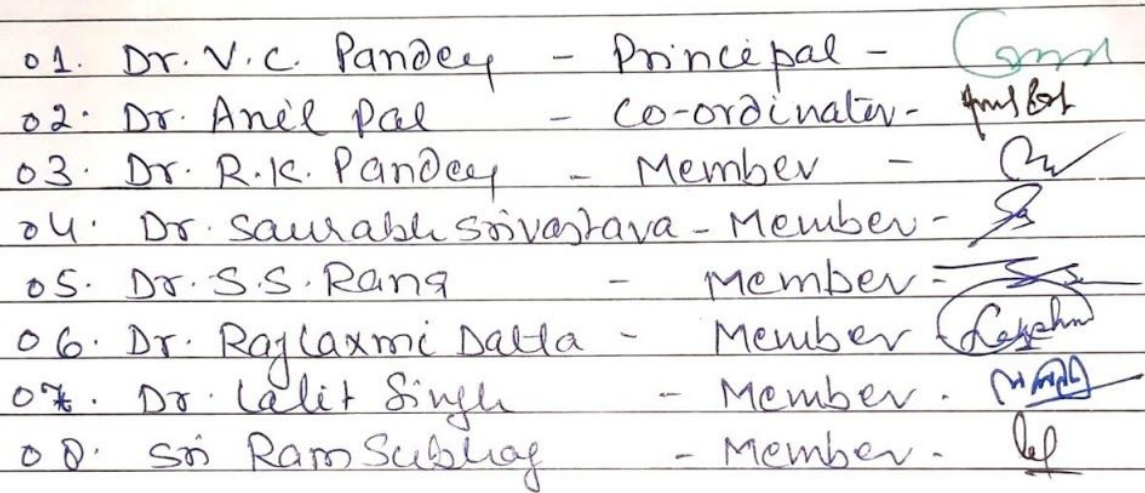 01. Dr. V.C. Pandey - Principal -
02. Dr. Anil Pal - Co-ordinator -
03. Dr. R.K. Pandey - Member -
04. Dr. Saurabh Srivastava - Member -
05. Dr. S.S. Rana - Member -
06. Dr. Rajlaxmi Datta - Member
07. Dr. Lalit Singh - Member .
08. Sri Ram Subhag - Member -